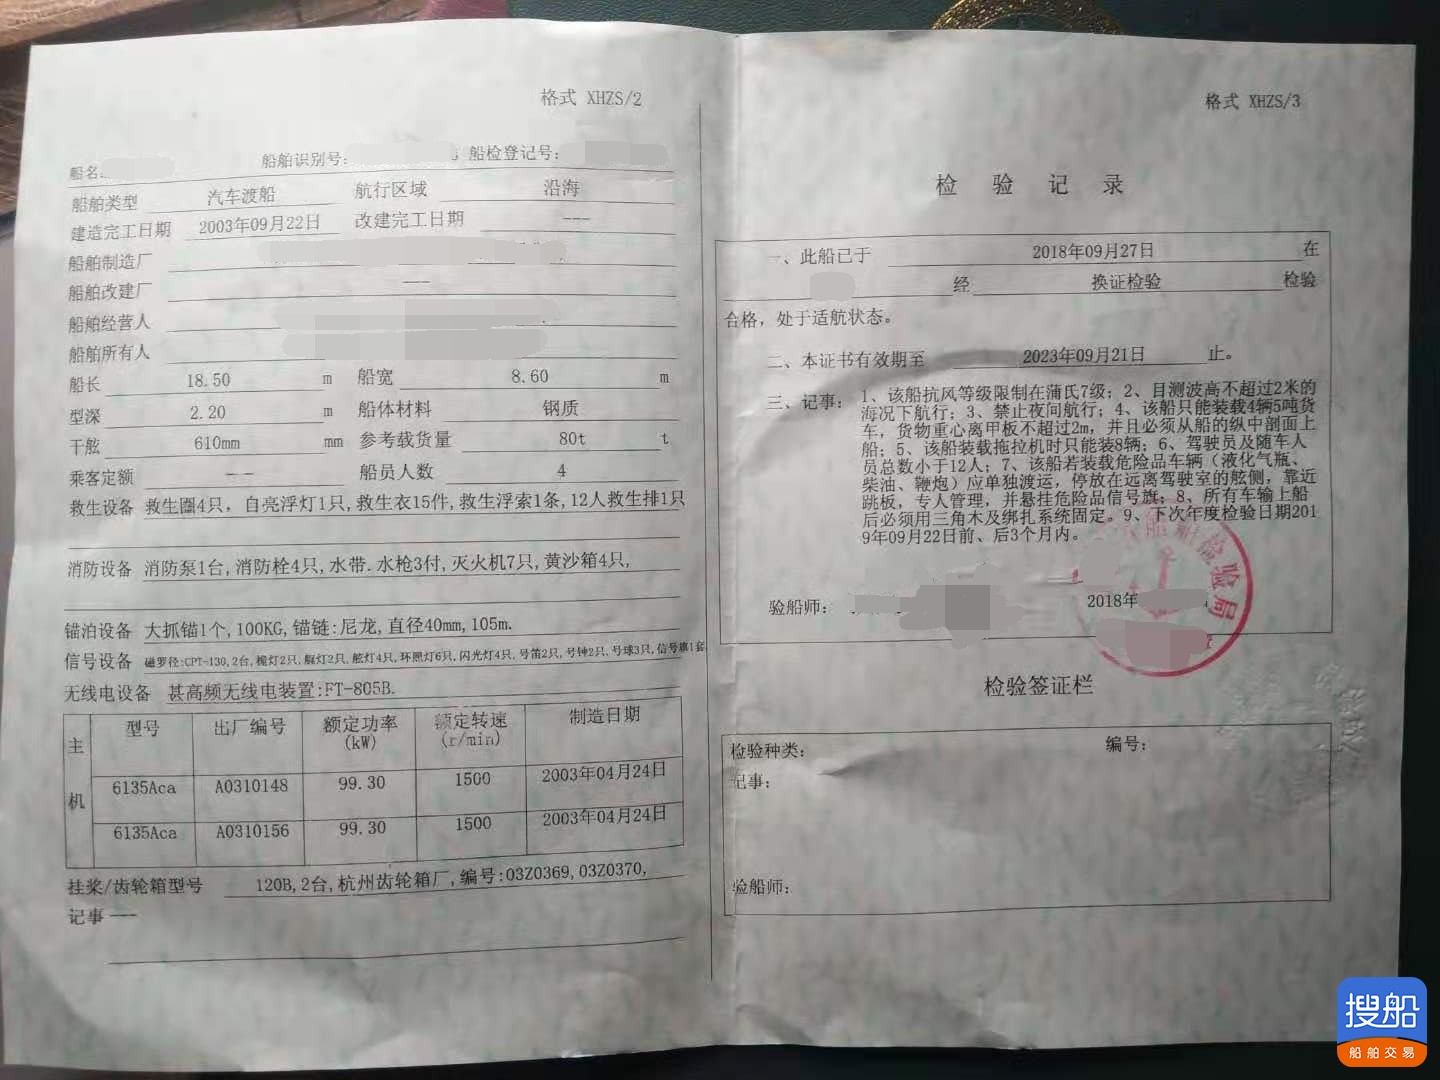 格式 XHZS/2
船名: 船舶识别号: 船检登记号:
船舶类型 汽车渡船 航行区域 沿海
建造完工日期 2003年09月22日 改建完工日期 ---
船舶制造厂
船舶改建厂 ---
船舶经营人
船舶所有人
船长 18.50 m 船宽 8.60 m
型深 2.20 m 船体材料 钢质
干舷 610mm mm 参考载货量 80t t
乘客定额 -- 船员人数 4
救生设备 救生圈4只, 自亮浮灯1只,救生衣15件,救生浮索1条,12人救生排1只
消防设备 消防泵1台,消防栓4只,水带.水枪3付,灭火机7只,黄沙箱4只,
锚泊设备 大抓锚1个,100KG,锚链:尼龙,直径40mm,105m.
信号设备 磁罗径:CPT-130,2台,桅灯2只,艇灯2只,舷灯4只,环照灯6只,闪光灯4只,号笛2只,号钟2只,号球3只,信号旗1套
无线电设备 甚高频无线电装置:FT-805B.
主机 型号 出厂编号 额定功率(kW) 额定转速(r/min) 制造日期
6135Aca A0310148 99.30 1500 2003年04月24日
6135Aca A0310156 99.30 1500 2003年04月24日
挂桨/齿轮箱型号 120B,2台,杭州齿轮箱厂,编号:03Z0369,03Z0370,
记事 ---
格式 XHZS/3
检验记录
一、此船已于 2018年09月27日 在
经 换证检验 检验
合格，处于适航状态。
二、本证书有效期至 2023年09月21日 止。
三、记事: 1、该船抗风等级限制在蒲氏7级；2、目测波高不超过2米的
海况下航行；3、禁止夜间航行；4、该船只能装载4辆5吨货
车，货物重心离甲板不超过2m，并且必须从船的纵中剖面上
船；5、该船装载拖拉机时只能装8辆；6、驾驶员及随车人
员总数小于12人；7、该船若装载危险品车辆（液化气瓶、
柴油、鞭炮）应单独渡运，停放在远离驾驶室的舷侧，靠近
跳板，专人管理，并悬挂危险品信号旗；8、所有车输上船
后必须用三角木及绑扎系统固定。9、下次年度检验日期201
9年09月22日前、后3个月内。
船舶检验局
验船师: 2018年
检验签证栏
检验种类: 编号:
记事:
验船师:
搜船
船舶交易